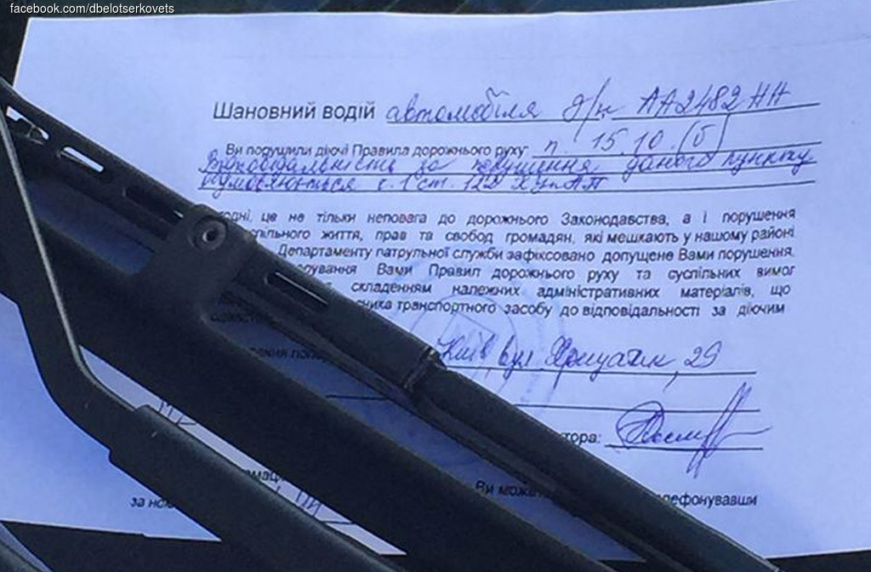 facebook.com/dbelotserkovets
Шановний водій автомобіля д/н АА2482НН
Ви порушили діючі Правила дорожнього руху: п. 15.10. (б)
Відповідальність за порушення даного пункту
ч. 1 ст. 122 КУпАП
це не тільки неповага до дорожнього Законодавства, а і порушення
життя, прав та свобод громадян, які мешкають у нашому районі
Департаменту патрульної служби зафіксовано допущене Вами порушення,
Вами Правил дорожнього руху та суспільних вимог
складенням належних адміністративних матеріалів, що
транспортного засобу до відповідальності за діючим
Київ, вул Хрещатик, 29
тора:
Ви
за